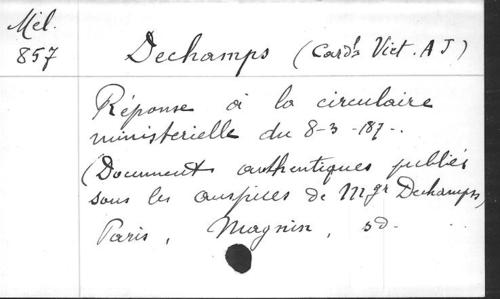 Mél.
857
Dechamps (Card^l Vict. A J)
Réponse à la circulaire
ministerielle du 8-3-187-.
(Documents authentiques publiés
sous les auspices de Mgr Dechamps)
Paris, Magnin, sd.